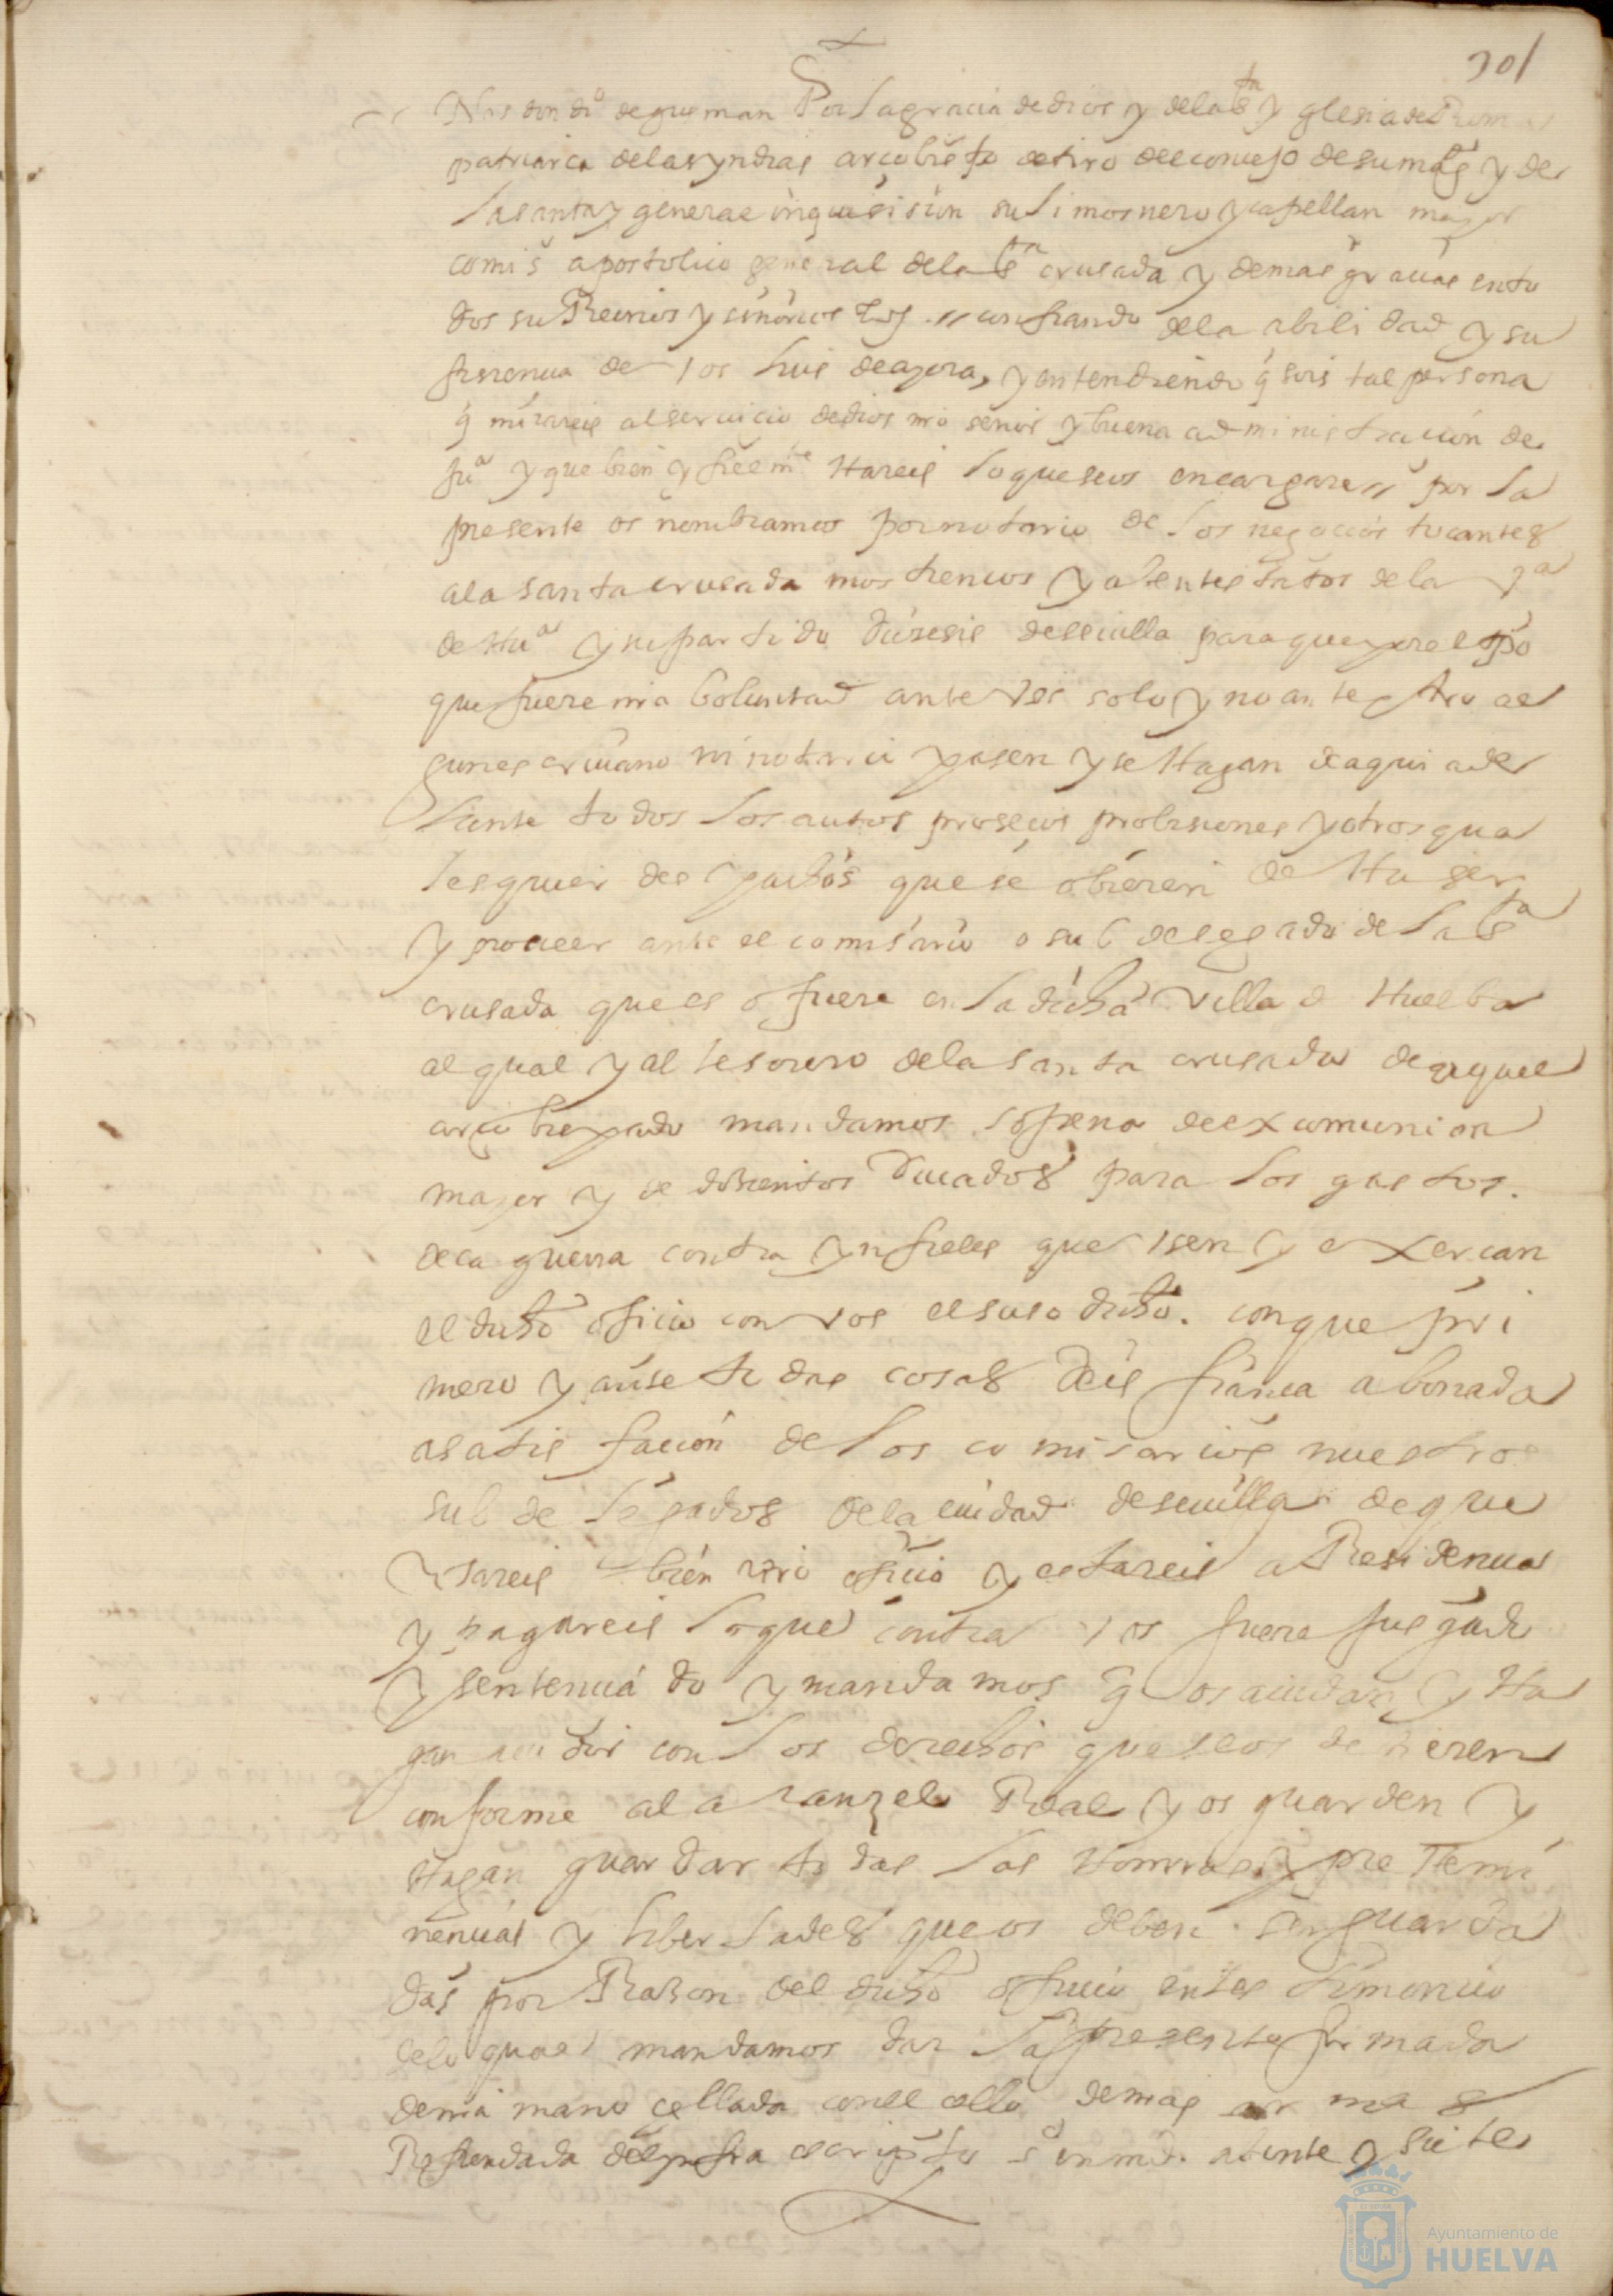 301
Nos don dio de gusman Por la gracia de dios y de la sta yglesia de Roma
patriarca de las yndias arcobispo de tiro del consejo de su mag y de
la santa y general inquisision su limosnero y capellan mayor
comis apostolico general de la sta crusada y demas gracias en to
dos su Reinos y señorios &c confiando de la abilidad y su
fisiencia de vos Luis de a, y entendiendo q sois tal persona
q mirareis al servicio de dios nro señor y buena administracion de
jua y que bien y fielmte Hareis lo que se os encargare por la
presente os nombramos por notario de los negocios tocantes
a la santa crusada mostrencos y abentestatos de la va
de Hua y su partido diosesis de sevilla para que por el tpo
que fuere nra boluntad ante vos solo y no ante otro al
gun escrivano ni notario pasen y se Hagan de aqui ade
lante todos los autos prosesos probisiones y otros qua
lesquier despachos que se obieren de Haser
y proveer ante el comisario o subdelegado de la sta
crusada que es o fuere en la dicha villa d Huelba
al qual y al tesorero de la santa crusada de aquel
arcobispado mandamos so pena de excomunion
major y de dosientos ducados para los gastos
de la guerra contra ynfieles que usen y exercan
el dicho oficio con vos el suso dicho. con que pri
mero y ante todas cosas deis fianca abonada
a satisfacion de los comisarios nuestros
subdelegados de la ciudad de sevilla de que
usareis bien vro oficio y estareis a Residencia
y pagareis lo que contra vos fuere jusgado
y sentenciado y mandamos q os acudan y Ha
gan acudir con los derechos que se os debieren
conforme al aranzel Real y os guarden y
Hagan guardar todas las Honrras y preHemi
nencias y libertades que os deben ser guarda
das por Rason del dicho oficio en testimonio
de lo qual mandamos dar la presente firmada
de nra mano sellada con el sello de mas armas
Refrendada del ynfra escripto s en md. a beinte y siete
Ayuntamiento de
HUELVA